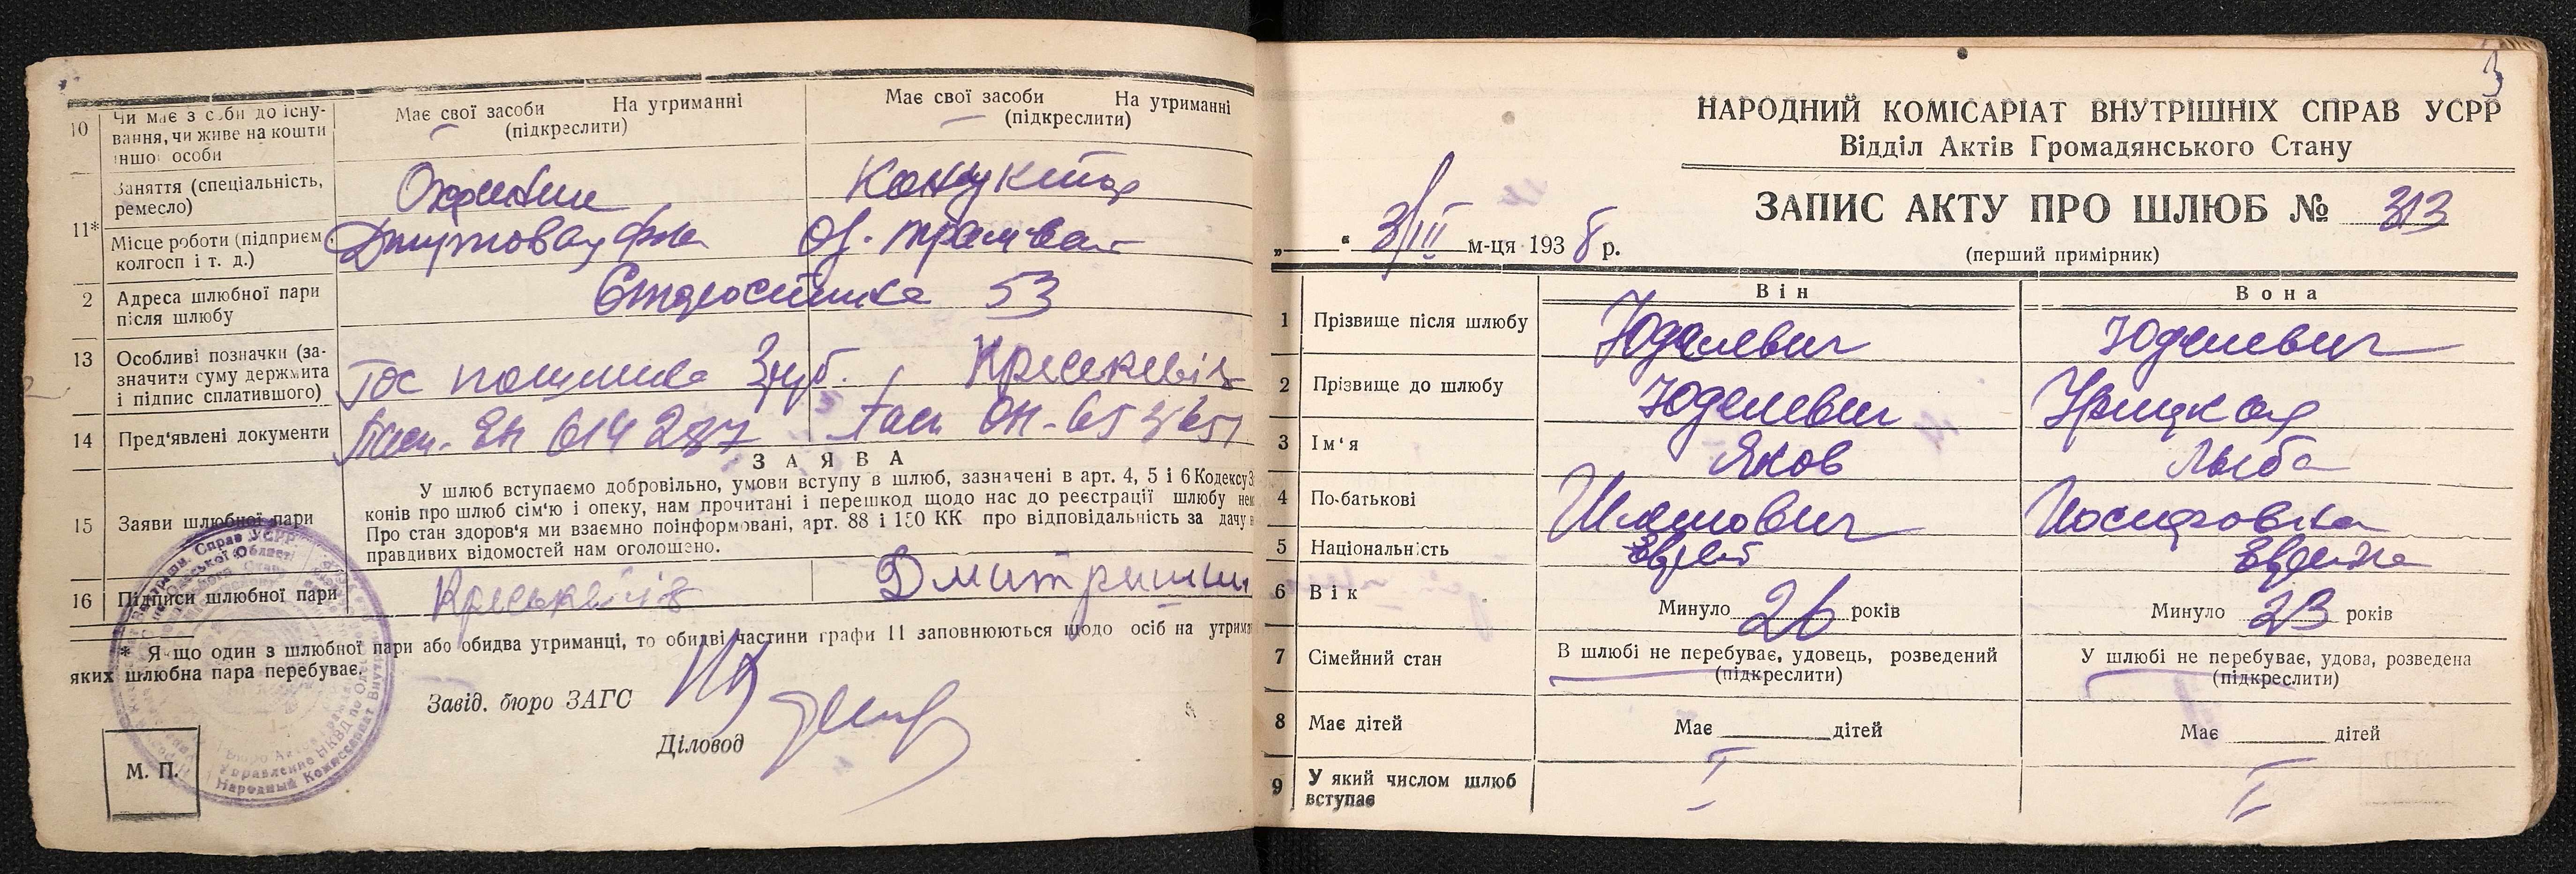 10 Чи має з с.би до існу-
вання, чи живе на кошти
іншої особи
Має свої засоби На утриманні
(підкреслити)
Має свої засоби На утриманні
(підкреслити)
11* Заняття (спеціальність,
ремесло)
Охранник
Кондуктор
Місце роботи (підприєм.
колгосп і т. д.)
Джутовая ф-ка
Од. трамвай
2 Адреса шлюбної пари
після шлюбу
53
13 Особливі позначки (за-
значити суму держмита
і підпис сплатившого)
Гос пошлина 3 руб.
14 Пред'явлені документи
614287
ЗАЯВА
15 Заяви шлюбної пари
У шлюб вступаємо добровільно, умови вступу в шлюб, зазначені в арт. 4, 5 і 6 Кодексу З
конів про шлюб сім'ю і опеку, нам прочитані і перешкод щодо нас до реєстрації шлюбу нем
Про стан здоров'я ми взаємно поінформовані, арт. 88 і 150 КК про відповідальність за дачу н
правдивих відомостей нам оголошено.
16 Підписи шлюбної пари
* Якщо один з шлюбної пари або обидва утриманці, то обидві частини графи 11 заповнюються щодо осіб на утрима
яких шлюбна пара перебуває.
Завід. бюро ЗАГС
Діловод
М. П.
3
НАРОДНИЙ КОМІСАРІАТ ВНУТРІШНІХ СПРАВ УСРР
Відділ Актів Громадянського Стану
ЗАПИС АКТУ ПРО ШЛЮБ № 313
„ “ 3/III м-ця 1938 р.
(перший примірник)
Він Вона
1 Прізвище після шлюбу Юделевич Юделевич
2 Прізвище до шлюбу Юделевич Урицкая
3 Ім'я Яков Лыба
4 По-батькові Шлемович Иосифовна
5 Національність Еврей Еврейка
6 Вік Минуло 26 років Минуло 23 років
7 Сімейний стан В шлюбі не перебуває, удовець, розведений
(підкреслити)
У шлюбі не перебуває, удова, розведена
(підкреслити)
8 Має дітей Має дітей Має дітей
9 У який числом шлюб
вступає
I I